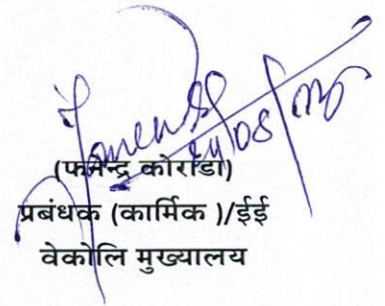 (फनेन्द्र कोराडा)
प्रबंधक (कार्मिक )/ईई
वेकोलि मुख्यालय